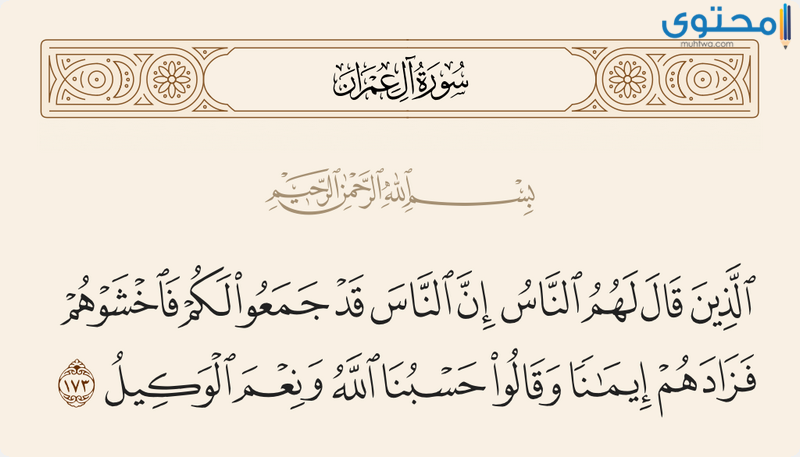 محتوى
muhtwa.com
سُورَةُ آلِ عِمْرَانَ
بِسْمِ اللَّهِ الرَّحْمَٰنِ الرَّحِيمِ
ٱلَّذِينَ قَالَ لَهُمُ ٱلنَّاسُ إِنَّ ٱلنَّاسَ قَدْ جَمَعُوا۟ لَكُمْ فَٱخْشَوْهُمْ
فَزَادَهُمْ إِيمَـٰنًا وَقَالُوا۟ حَسْبُنَا ٱللَّهُ وَنِعْمَ ٱلْوَكِيلُ ١٧٣